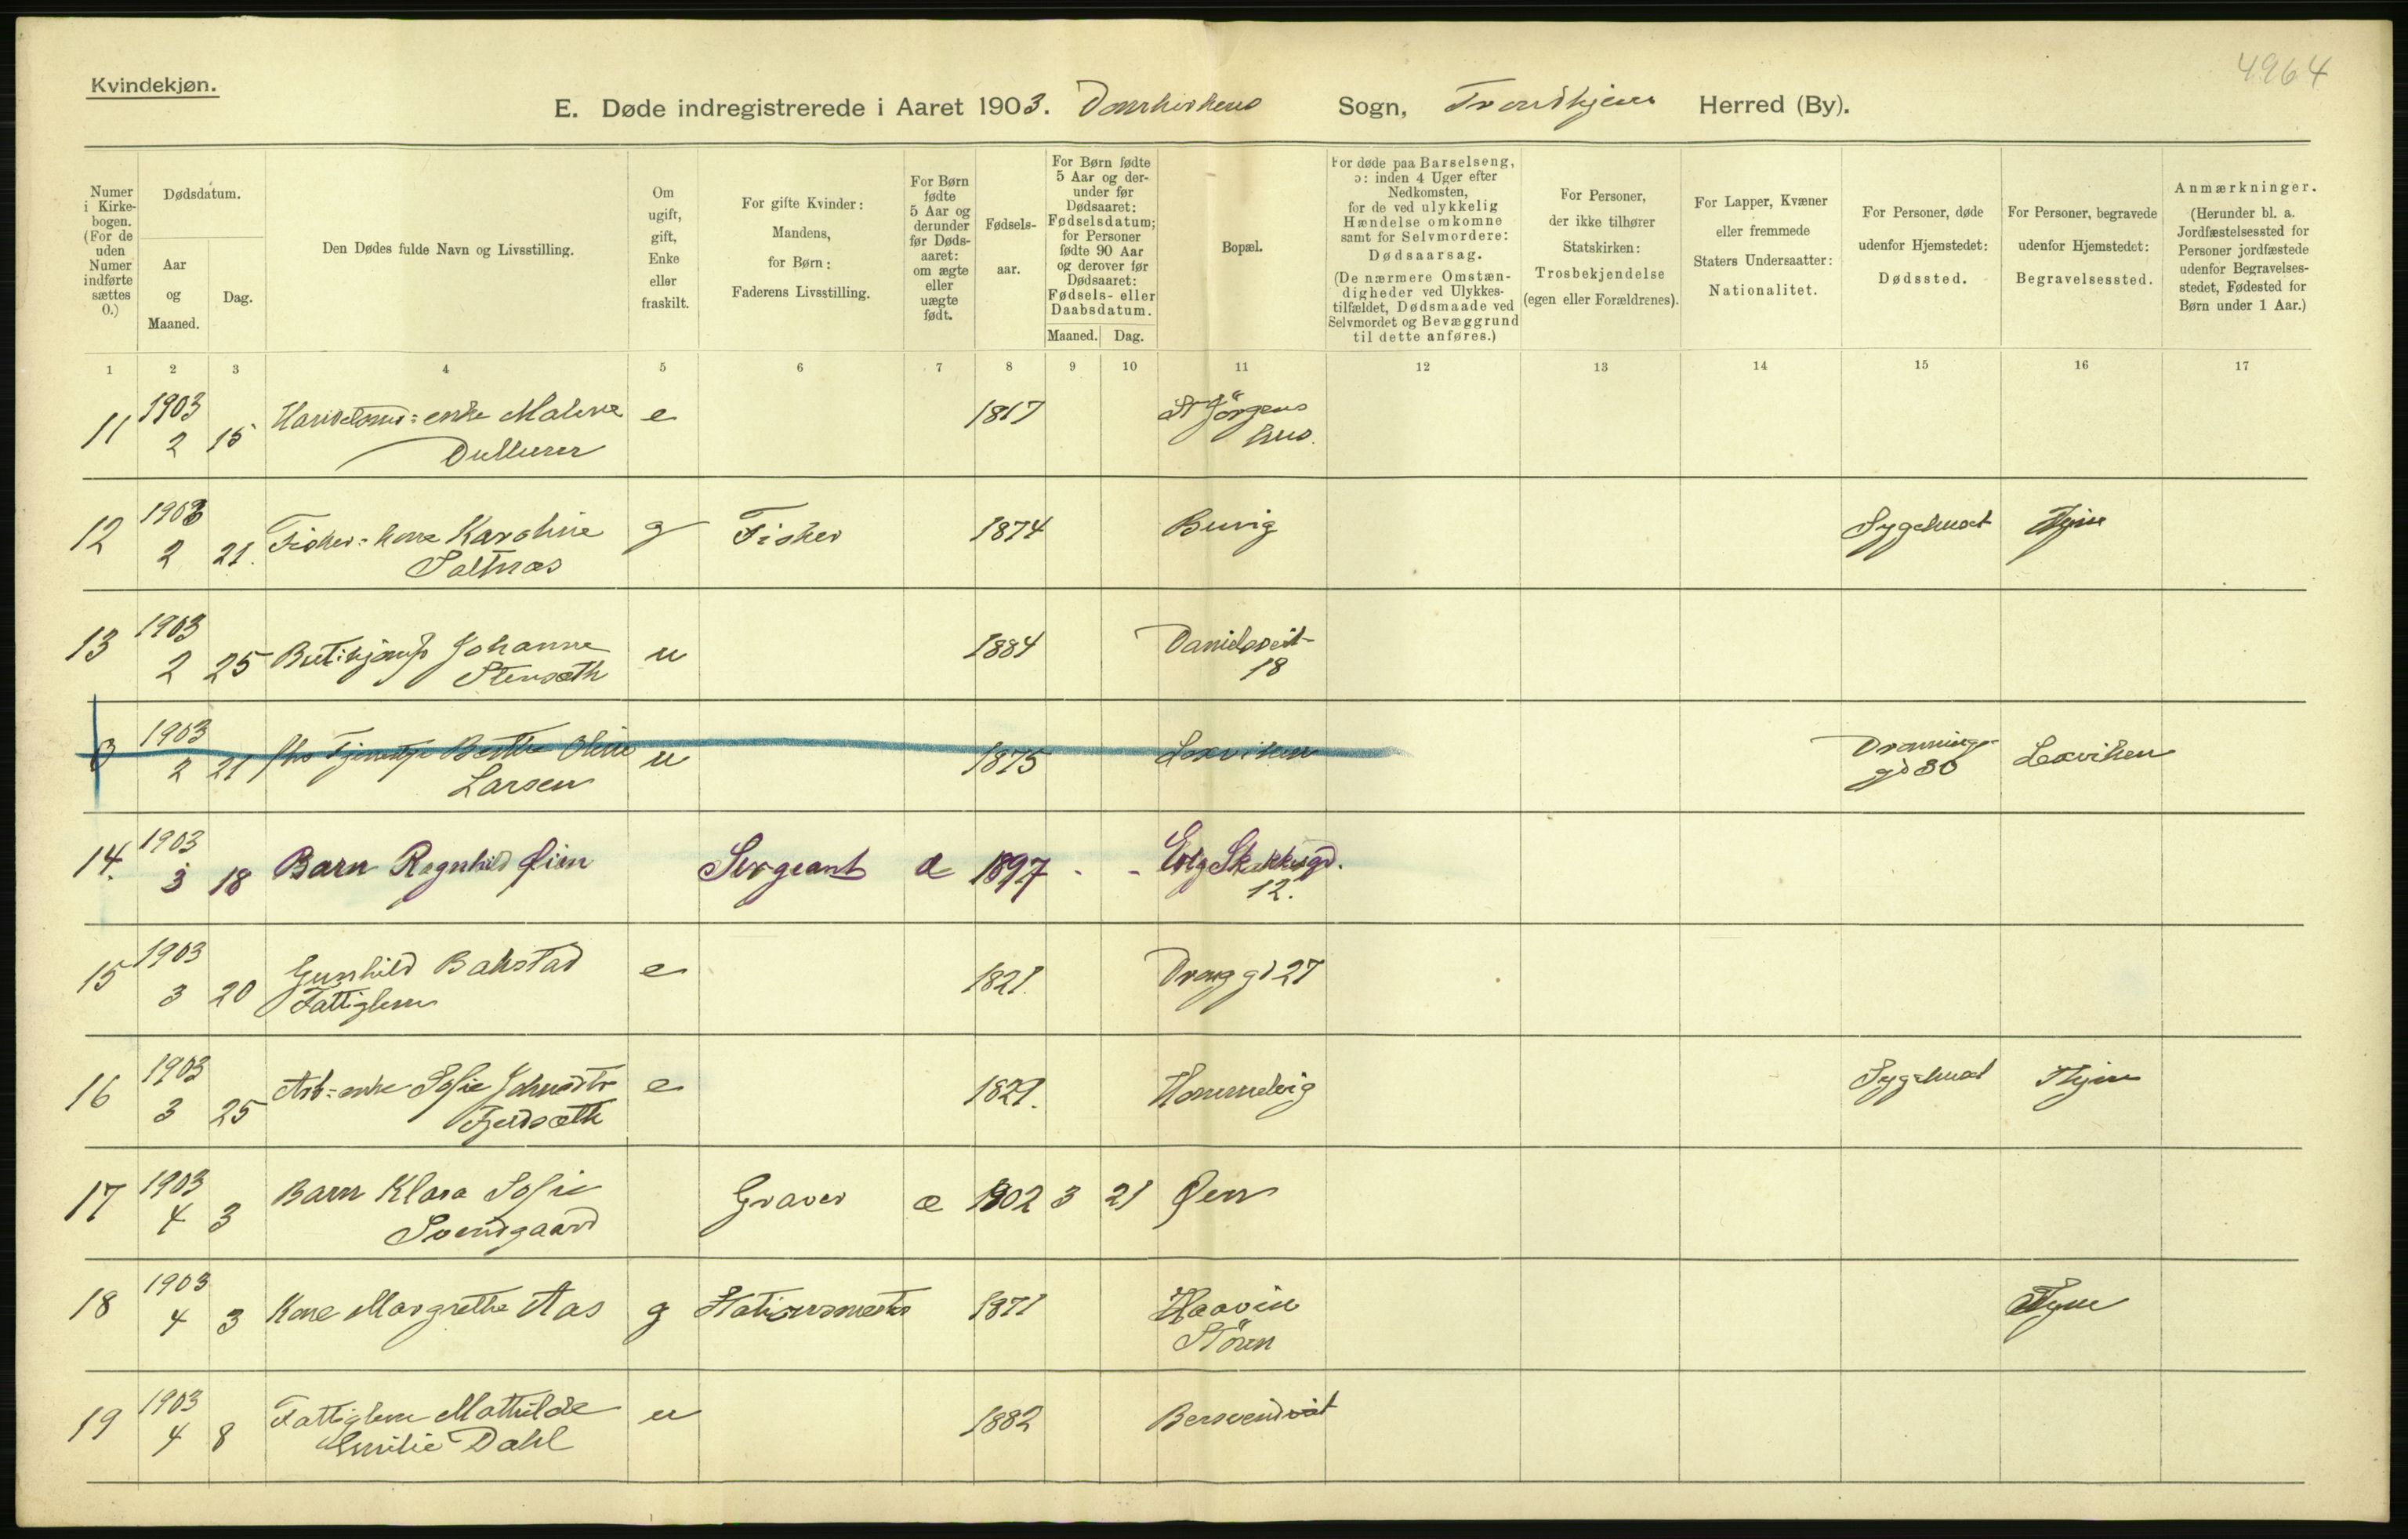 4964
Kvindekjøn.
E. Døde indregistrerede i Aaret 1903. Domkirkens Sogn, Trondhjem Herred (By).
Numer i Kirkebogen. (For de uden Numer indførte sættes 0.)
Dødsdatum.
Aar og Maaned.
Dag.
Den Dødes fulde Navn og Livsstilling.
Om ugift, gift, Enke eller fraskilt.
For gifte Kvinder: Mandens, for Børn: Faderens Livsstilling.
For Børn fødte 5 Aar og derunder før Dødsaaret: om ægte eller uægte født.
Fødselsaar.
For Børn fødte 5 Aar og derunder før Dødsaaret: Fødselsdatum; for Personer fødte 90 Aar og derover før Dødsaaret: Fødsels- eller Daabsdatum.
Maaned. Dag.
Bopæl.
For døde paa Barselseng, ɔ: inden 4 Uger efter Nedkomsten, for de ved ulykkelig Hændelse omkomne samt for Selvmordere: Dødsaarsag. (De nærmere Omstændigheder ved Ulykkestilfældet, Dødsmaade ved Selvmordet og Bevæggrund til dette anføres.)
For Personer, der ikke tilhører Statskirken: Trosbekjendelse (egen eller Forældrenes).
For Lapper, Kvæner eller fremmede Staters Undersaatter: Nationalitet.
For Personer, døde udenfor Hjemstedet: Dødssted.
For Personer, begravede udenfor Hjemstedet: Begravelsessted.
Anmærkninger. (Herunder bl. a. Jordfæstelsessted for Personer jordfæstede udenfor Begravelsesstedet, Fødested for Børn under 1 Aar.)
1 2 3 4 5 6 7 8 9 10 11 12 13 14 15 16 17
11 1903 2 15 enke Malene e 1817 St Jörgens hus.
12 1903 2 21. Fisker= kone Karoline Saltnæs g Fisker 1874 Buvig Sygehuset Thjem
13 1903 2 25 Johanne Stensæth u 1884 Danielsveit 18
0 1903 2 21 Berthe Oline Larsen u 1875 Lexviken Dronning gd 30 Lexviken
14. 1903 3 18 Barn Ragnhild Øien Sergeant æ 1897 - - Erlg Skakkesgd. 12.
15 1903 3 20 Gunhild Bakstad Fattiglem e 1821. Drong gd 27
16 1903 3 25 Arb=enke Sofie Fjeldsæth e 1821. Hommelvig Sygehuset Thjem
17 1903 4 3 Barn Klara Sofie Svendgaard Graver æ 1902 3 21 Øen
18 1903 4 3 Kone Margrethe Aas g Stationsmester 1871 Stören Thjem
19 1903 4 8 Fattiglem Mathilde Emilie Dahl u 1882 Bersvendveit